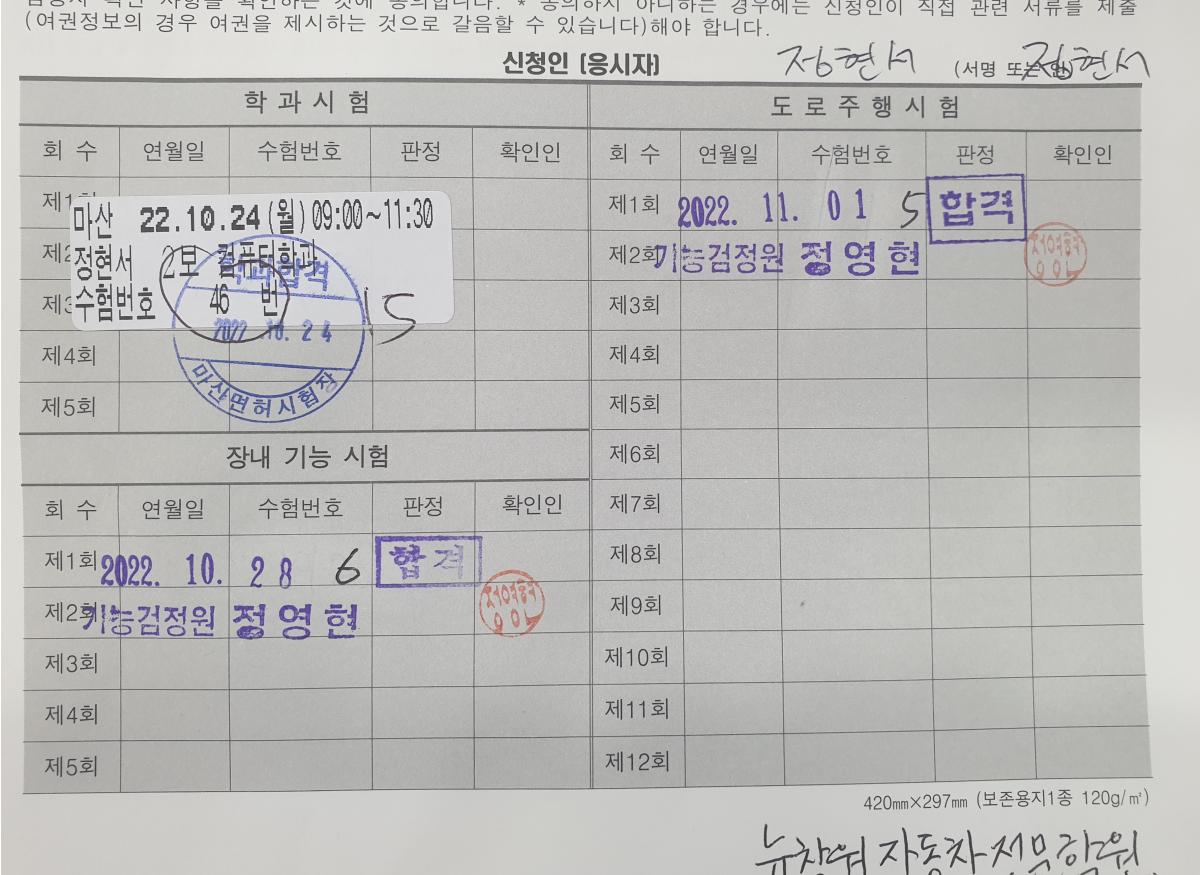 검증시 확인 사항을 확인하는 것에 동의합니다. * 동의하지 아니하는 경우에는 신청인이 직접 관련 서류를 제출
(여권정보의 경우 여권을 제시하는 것으로 갈음할 수 있습니다)해야 합니다.
신청인 (응시자) 정현서 (서명 또는 인) 정현서
학 과 시 험
회 수 연월일 수험번호 판정 확인인
제1회
마산 22.10.24(월) 09:00~11:30
제2회
정현서 2보 컴퓨터학관
학과합격
제3회
수험번호 46 번
15
2022. 10. 24
제4회
제5회
마산면허시험장
장내 기능 시험
회 수 연월일 수험번호 판정 확인인
제1회 2022. 10. 28 6 합격
제2회 기능검정원 정영현
제3회
제4회
제5회
도 로 주 행 시 험
회 수 연월일 수험번호 판정 확인인
제1회 2022. 11. 01 5 합격
제2회 기능검정원 정영현
제3회
제4회
제5회
제6회
제7회
제8회
제9회
제10회
제11회
제12회
420㎜×297㎜ (보존용지1종 120g/㎡)
뉴창원자동차전문학원